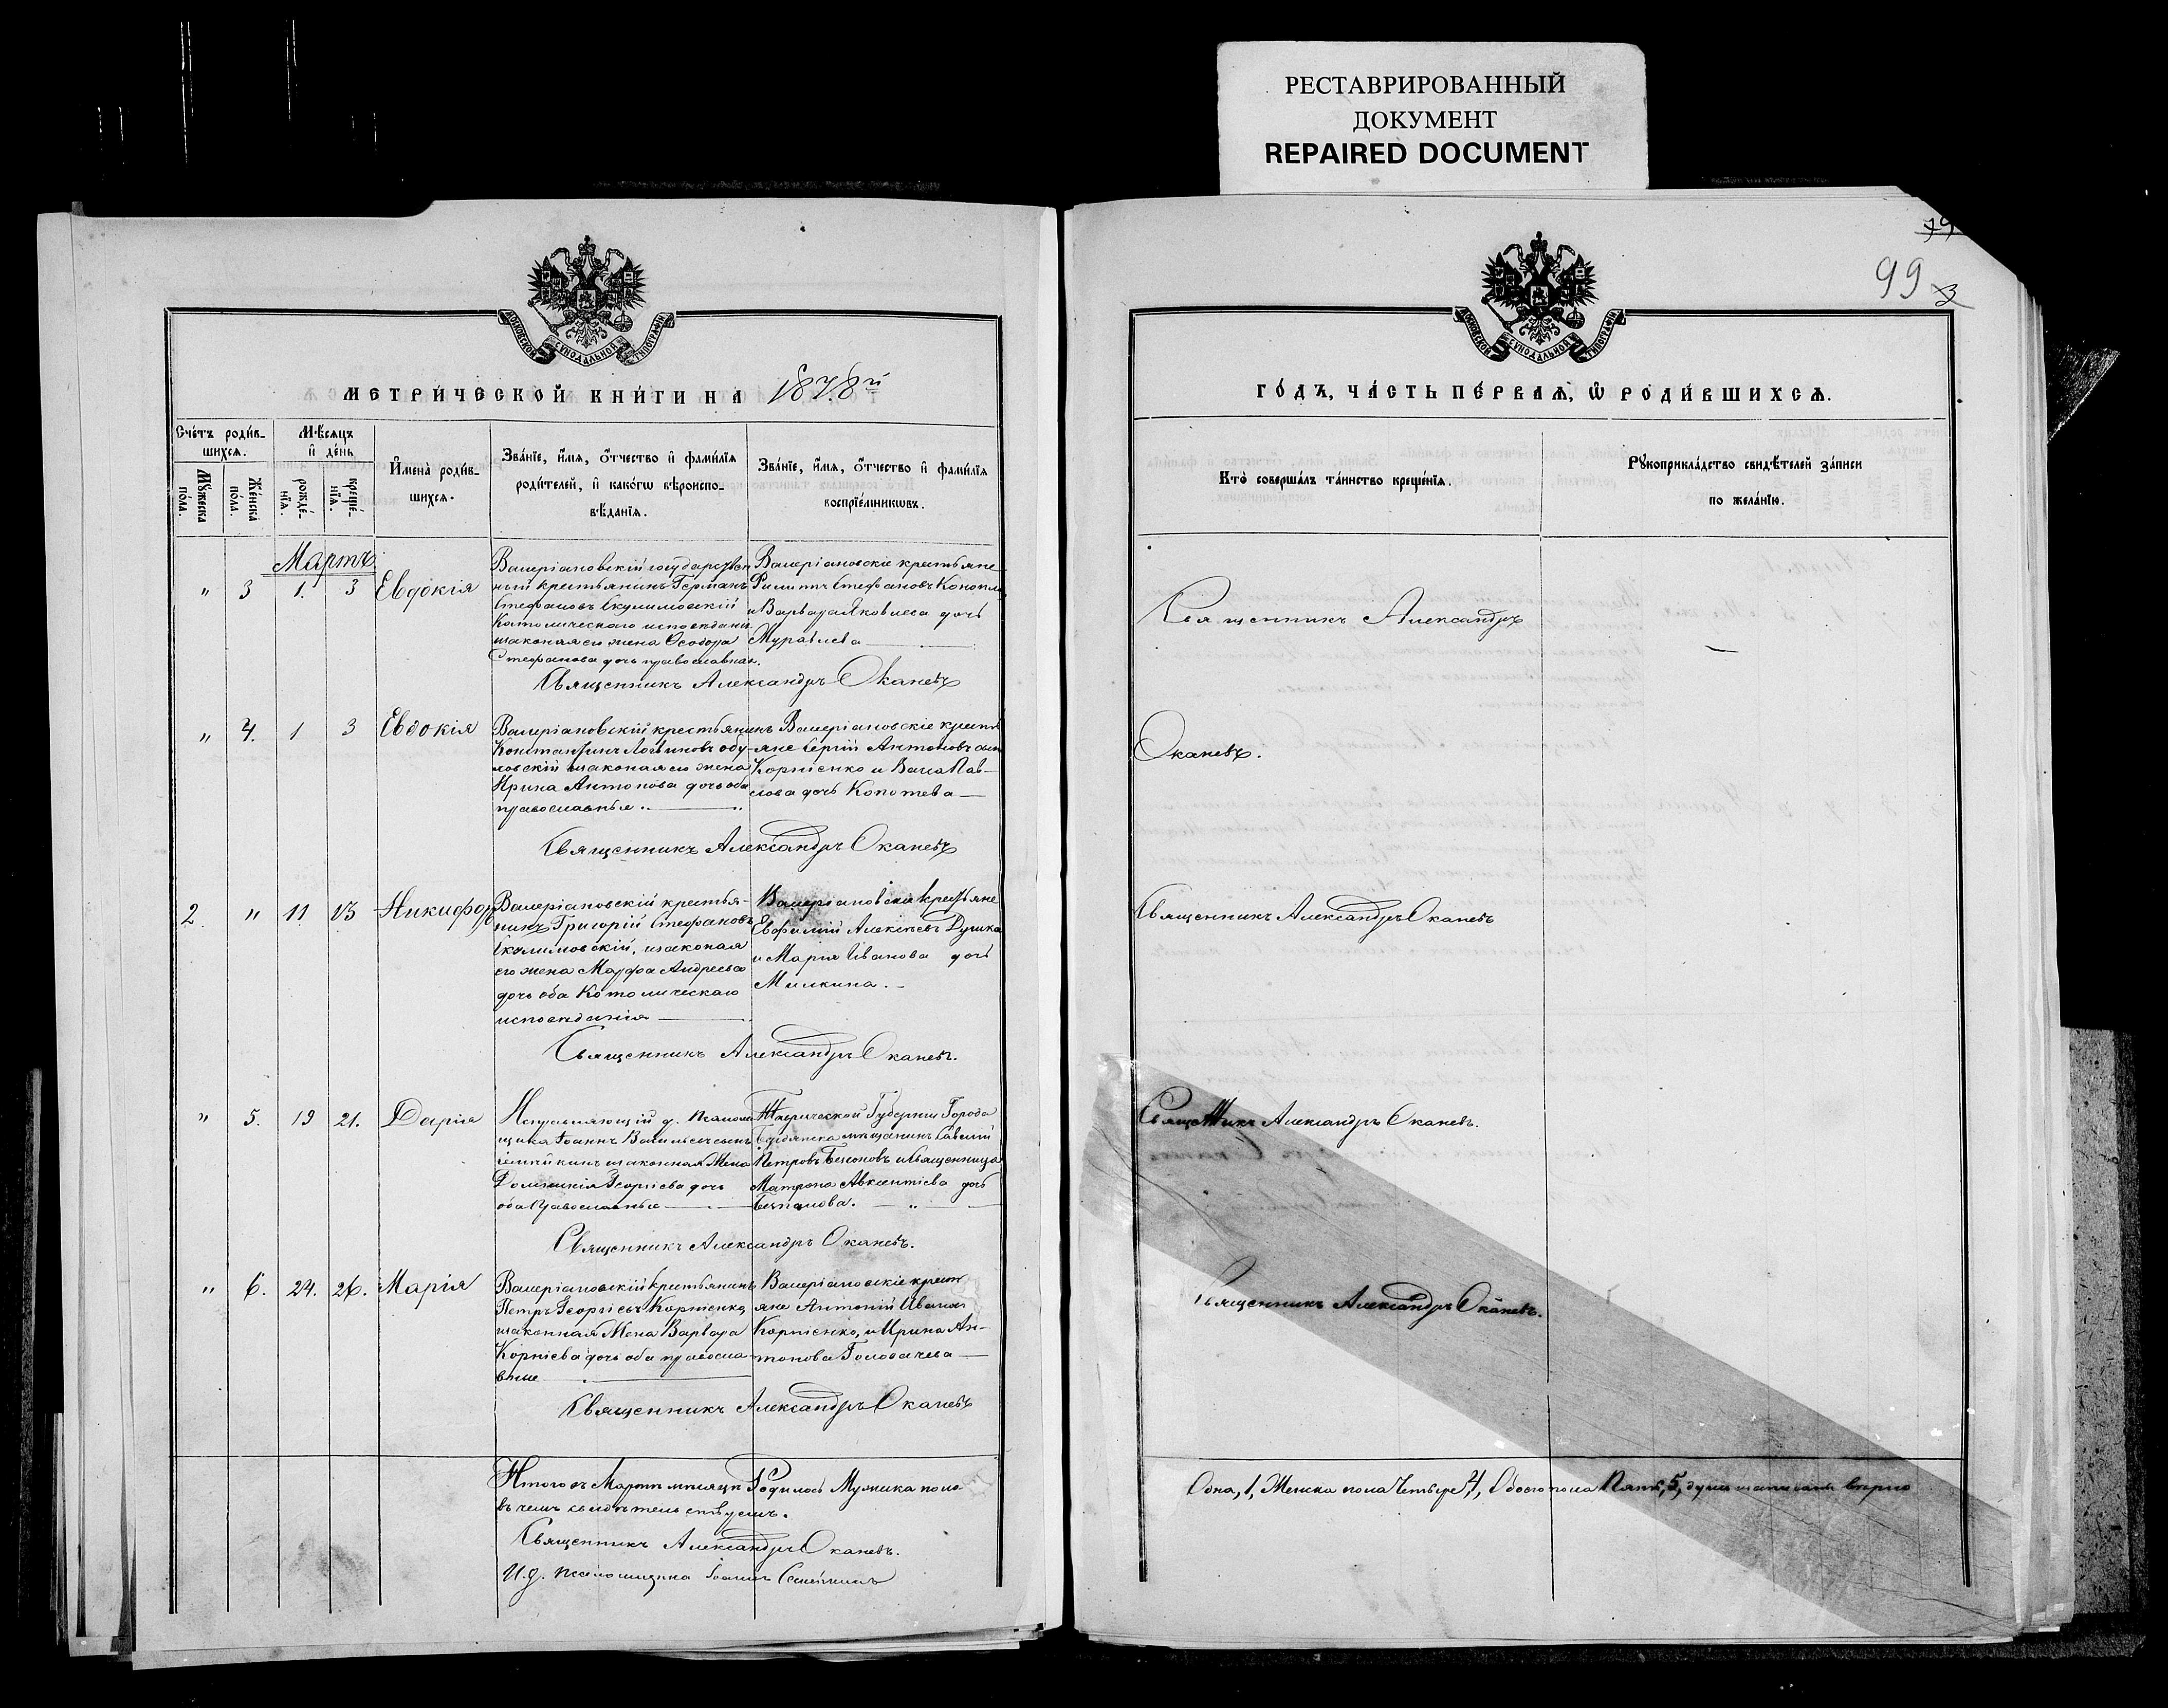 РЕСТАВРИРОВАННЫЙ
ДОКУМЕНТ
REPAIRED DOCUMENT
МОСКОВСКОЙ СУНОДАЛЬНОЙ ТИПОГРАФІИ
МЕТРИ́ЧЕСКОЙ КНИ́ГИ НА 1878й
Сче́тъ роди́в-
шихсѧ.
Мѣ́сяцъ
и҆ де́нь
Мꙋ́жеска
по́ла.
Же́нска
по́ла.
рожде́-
нїѧ.
креще́-
нїѧ.
И҆мена̀ роди́в-
шихсѧ.
Зва́нїе, и҆́мѧ, ѻ҆́тчество и҆ фами́лїѧ
роди́телей, и҆ како́гѡ вѣроиспо-
вѣ́данїѧ.
Зва́нїе, и҆́мѧ, ѻ҆́тчество и҆ фами́лїѧ
воспрїе́мникѡвъ.
Мартъ
" 3 1. 3 Евдокія
Валеріановскій государствен
ный крестьянинъ Германъ
Стефановъ Скулимовскій
Католическаго исповѣданія
законная его жена Ѳеодора
Стефанова дочь православная.
Валеріановскіе крестьяне
Филиппъ Стефановъ
и Варвара Яковлева дочь
Муравлева
Священникъ Александръ Оканевъ
" 4. 1 3 Евдокія
Валеріановскій крестьянинъ
Константинъ обу-
ховскій законная его жена
Ирина Антонова дочь оба
православные
Валеріановскіе кресть
яне Сергій Антоновъ сын
Корніенко и Пав-
лова дочь Копотева
Священникъ Александръ Оканевъ
2. " 11 13 Никифоръ
Валеріановскій крестья-
нинъ Григорій Стефановъ
Скулимовскій, законная
его жена Марфа Андреева
дочь оба Католическаго
исповѣданія
Валеріановскіе крестьяне
Евфимій Алексѣевъ
и Марія Иванова дочь
Милкина.
Священникъ Александръ Оканевъ.
" 5. 19 21. Дарія
Исправляющій д. Псалом
щика Іоаннъ Васильевъ сынъ
законная Жена
Домникія Георгіева дочь
оба Православные
Таврической Губерніи Города
Бердянска мѣщанинъ Савелій
Петровъ и Священница
Матрона Авксентіева дочь
Священникъ Александръ Оканевъ.
" 6. 24. 26. Марія
Валеріановскій Крестьянинъ
Петръ Георгіевъ Корніенко,
законная Жена Варвара
Корніева дочь оба православ
вные
Валеріановскіе крест
яне Антоній Иванов
Корніенко, и Ирина Ан-
тонова Головачева
Священникъ Александръ Оканевъ
Итого въ Мартѣ мѣсяцѣ Родилось Мужска пола
въ чемъ свидѣтельствуемъ.
Священникъ Александръ Оканевъ.
И. д. псаломщика Іоаннъ
99
ГО́ДЪ, ЧА́СТЬ ПЕ́РВАѦ, Ѡ҆ РОДИ́ВШИХСѦ.
Кто̀ соверша́лъ та́инство креще́нїѧ.
Рꙋкоприкла́дство свидѣ́телей за́писи
по жела́нїю.
Священникъ Александръ
Оканевъ.
Священникъ Александръ Оканевъ
Священникъ Александръ Оканевъ.
Священникъ Александръ Оканевъ.
Одна, 1, Женска пола Четыре, 4, Обоего пола Пять, 5, душъ записано вѣрно